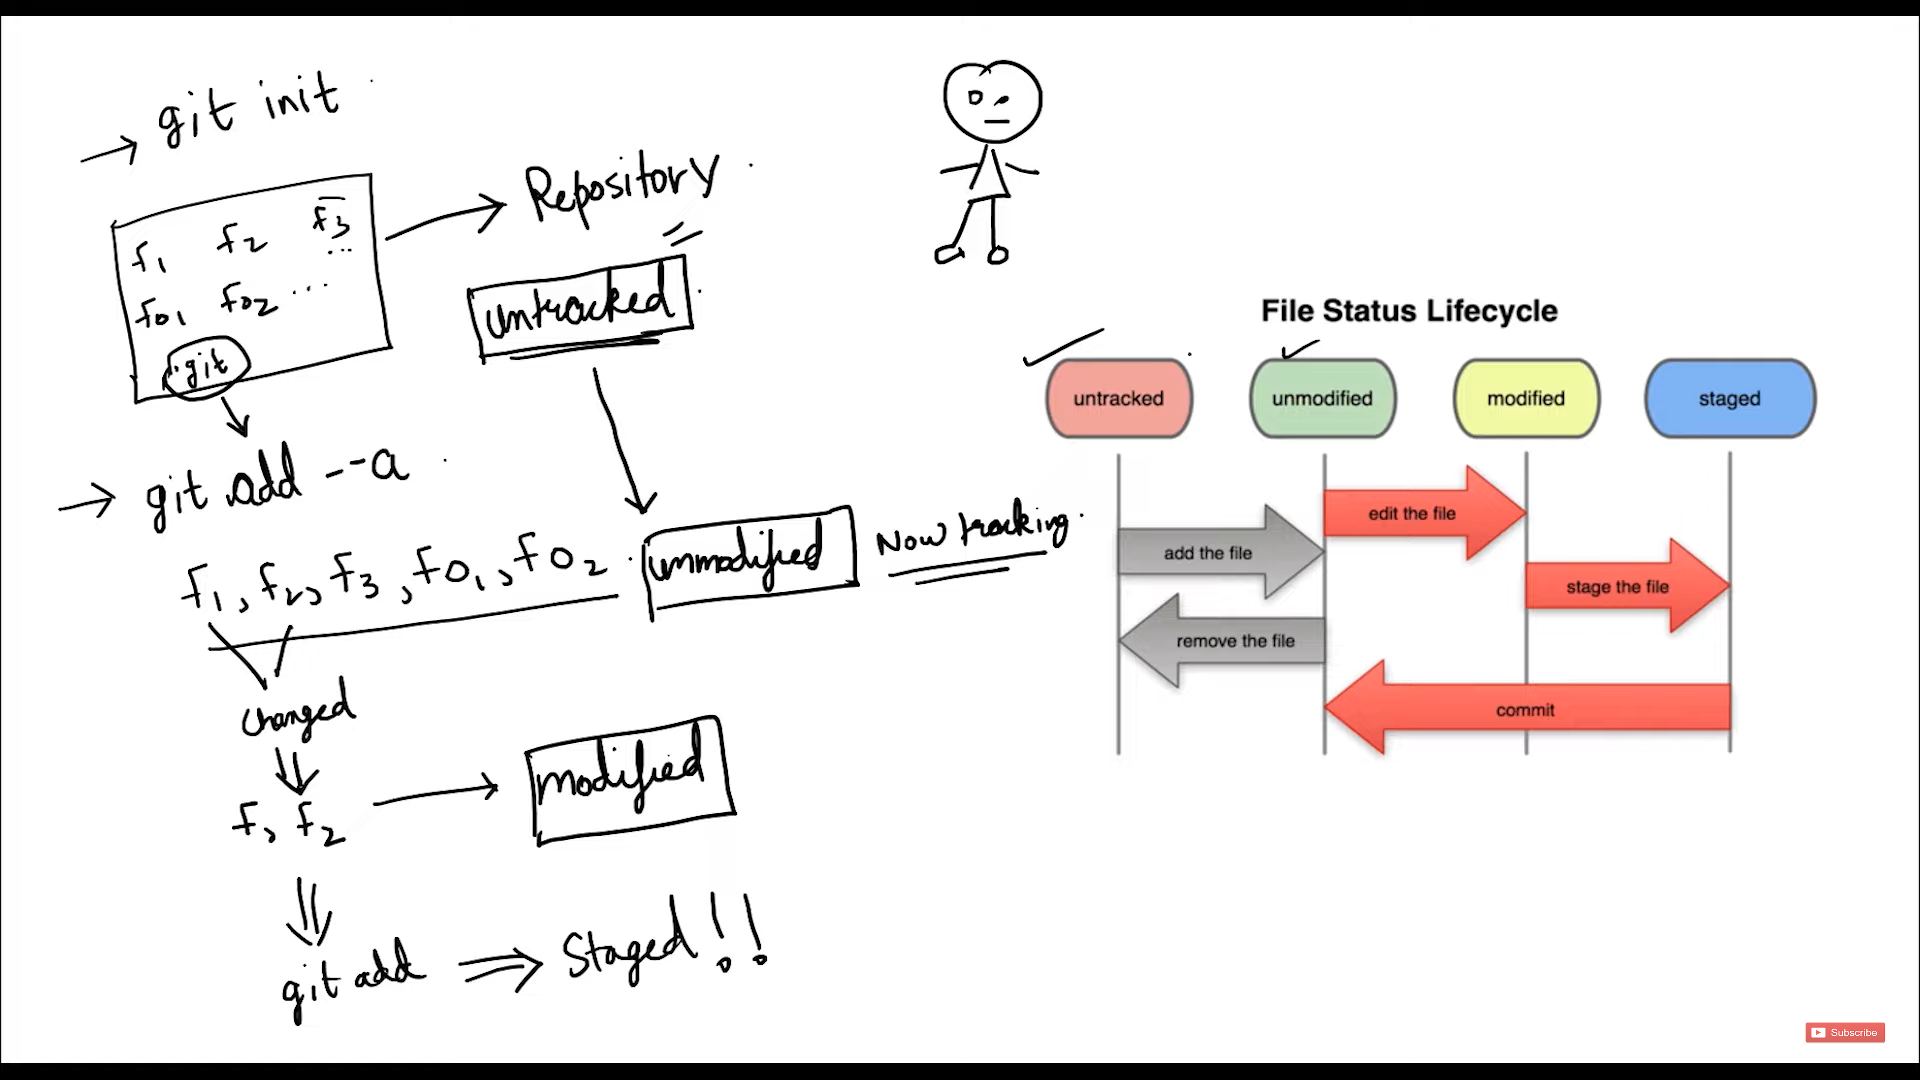 → git init
f1 f2 f3 ...
f01 f02 ...
.git
→ Repository
untracked
→ git add --a
f1, f2, f3, f01, f02
unmodified
Now tracking.
changed
f, f2
→ modified
git add ⇒ Staged!!
File Status Lifecycle
untracked unmodified modified staged
edit the file
add the file
stage the file
remove the file
commit
Subscribe